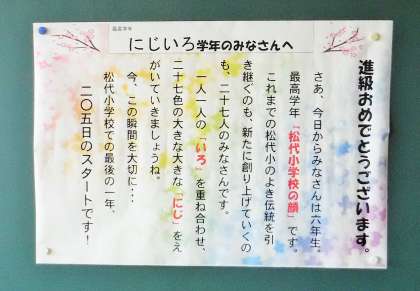 最高学年
にじいろ学年のみなさんへ
進級おめでとうございます。
さあ、今日からみなさんは六年生。
最高学年『松代小学校の顔』です。
これまでの松代小のよき伝統を引
き継ぐのも、新たに創り上げていくの
も、二十七人のみなさんです。
一人一人の『いろ』を重ね合わせ、
二十七色の大きな大きな『にじ』をえ
がいていきましょうね。
今、この瞬間を大切に…
松代小学校での最後の一年、
二〇五日のスタートです！